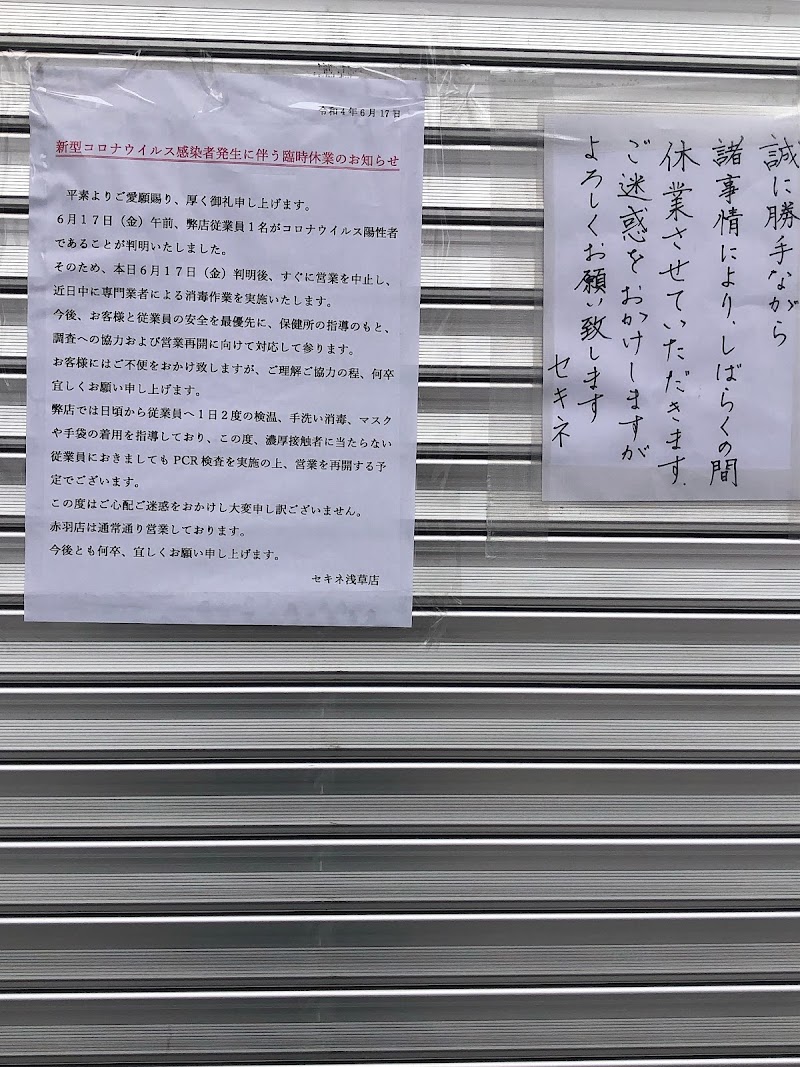 令和4年6月17日
新型コロナウイルス感染者発生に伴う臨時休業のお知らせ
平素よりご愛願賜り、厚く御礼申し上げます。
6月17日（金）午前、弊店従業員1名がコロナウイルス陽性者
であることが判明いたしました。
そのため、本日6月17日（金）判明後、すぐに営業を中止し、
近日中に専門業者による消毒作業を実施いたします。
今後、お客様と従業員の安全を最優先に、保健所の指導のもと、
調査への協力および営業再開に向けて対応して参ります。
お客様にはご不便をおかけ致しますが、ご理解ご協力の程、何卒
宜しくお願い申し上げます。
弊店では日頃から従業員へ1日2度の検温、手洗い消毒、マスク
や手袋の着用を指導しており、この度、濃厚接触者に当たらない
従業員におきましてもPCR検査を実施の上、営業を再開する予
定でございます。
この度はご心配ご迷惑をおかけし大変申し訳ございません。
赤羽店は通常通り営業しております。
今後とも何卒、宜しくお願い申し上げます。
セキネ浅草店
誠に勝手ながら
諸事情により、しばらくの間
休業させていただきます.
ご迷惑をおかけしますが
よろしくお願い致します
セキネ